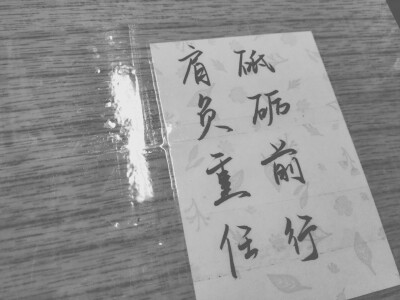 肩负重任
砥砺前行